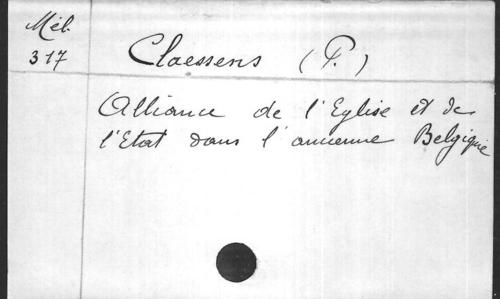 Mél.
317
Claessens (P.)
Alliance de l'Eglise et de
l'Etat dans l'ancienne Belgique